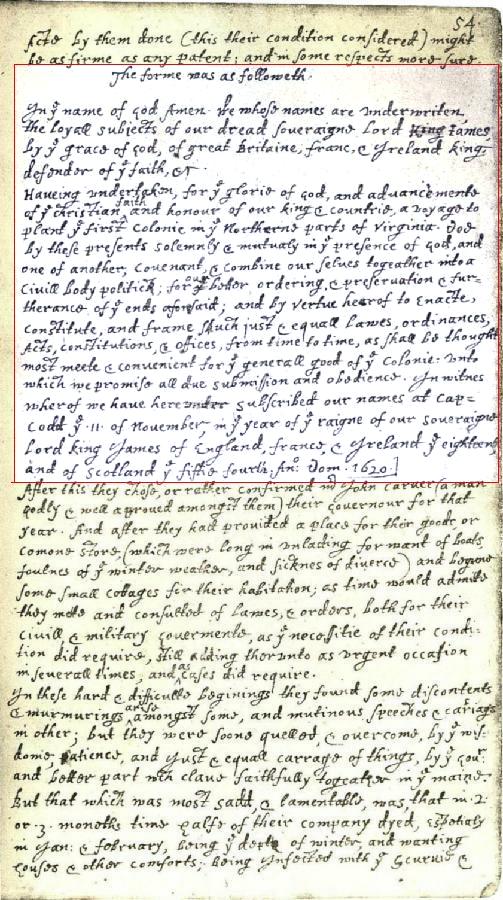 54.
Acte by them done (this their condition considered) might
be as firme as any patent; and in some respects more sure.
The forme was as followeth.
In yͤ name of god Amen. We whose names are underwriten,
the loyall subjects of our dread soveraigne Lord King James
by yͤ grace of god, of great Britaine, franc, & Ireland king,
defender of yͤ faith, &c
Haveing undertaken, for yͤ glorie of god, and advancemente
of yͤ christian faith and honour of our king & countrie, a voyage to
plant yͤ first colonie in yͤ Northerne parts of Virginia. Doe
by these presents solemnly & mutualy in yͤ presence of god, and
one of another, covenant, & combine our selves togeather into a
Civill body politick; for our better ordering, & preservation & fur-
therance of yͤ ends aforesaid; and by vertue hearof to Enacte,
constitute, and frame such just & equall lawes, ordinances,
Acts, constitutions, & offices, from time to time, as shall be thought
most meete & convenient for yͤ generall good of yͤ Colonie: unto
which we promise all due submission and obedience. In witnes
wherof we have hereunder subscribed our names at Cap-
Codd yͤ ·11· of November, in yͤ year of yͤ raigne of our soveraigne
Lord king James of England, france, & Ireland yͤ eighteenth
and of Scotland yͤ fiftie fourth. An°: Dom. 1620.]
After this they chose, or rather confirmed mr John Carver (a man
godly & well approved amongst them) their governour for that
year. And after they had provided a place for their goods, or
comone store, (which were long in unlading for want of boats,
foulnes of yͤ winter weather, and sicknes of diverce) and begune
some small cottages for their habitation; as time would admitte
they mette and consulted of lawes, & orders, both for their
civill & military govermente, as yͤ necessitie of their condi-
tion did require, still adding therunto as urgent occasion
in severall times, and as cases did require.
In these hard & difficulte beginings they found some discontents
& murmurings arise amongst some, and mutinous speeches & cariags
in other; but they were soone quelled, & overcome, by yͤ wis-
dome, patience, and just & equall carrage of things, by yͤ gov:
and better part wch clave faithfully togeather in yͤ maine.
But that which was most sadd, & lamentable, was, that in ·2·
or ·3· moneths time halfe of their company dyed, espetialy
in Jan: & february, being yͤ depth of winter, and wanting
houses & other comforts; being Infected with yͤ scurvie &